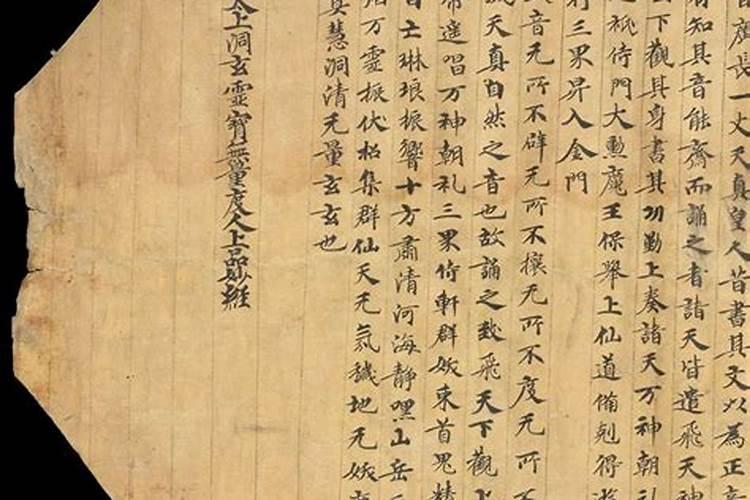 廣長一丈天真皇人昔書其文以為正音
有知其音能齋而誦之者諸天皆遣飛天神
下觀其身書其功勤上奏諸天万神朝礼
祇侍門大勳魔王保舉上仙道備剋得遊
行三界昇入金門
音无所不辟无所不攘无所不度无所不
天真自然之音也故誦之致飛天下觀上
帝遥唱万神朝礼三界侍軒群妖束首鬼精
自亡琳琅振響十方肅清河海静嘿山岳
万靈振伏招集群仙天无氛穢地无妖
冥慧洞清无量玄玄也
太上洞玄靈寶無量度人上品妙經